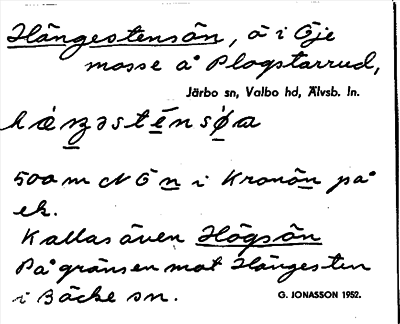 Hängestensön, ö i Öje
mosse å Plogstarrud,
Järbo sn, Valbo hd, Älvsb. ln.
500 m N Ö n i Kronön på
ek.
Kallas även Högsön
På gränsen mot Hängesten
i Bäcke sn.
G. JONASSON 1952.